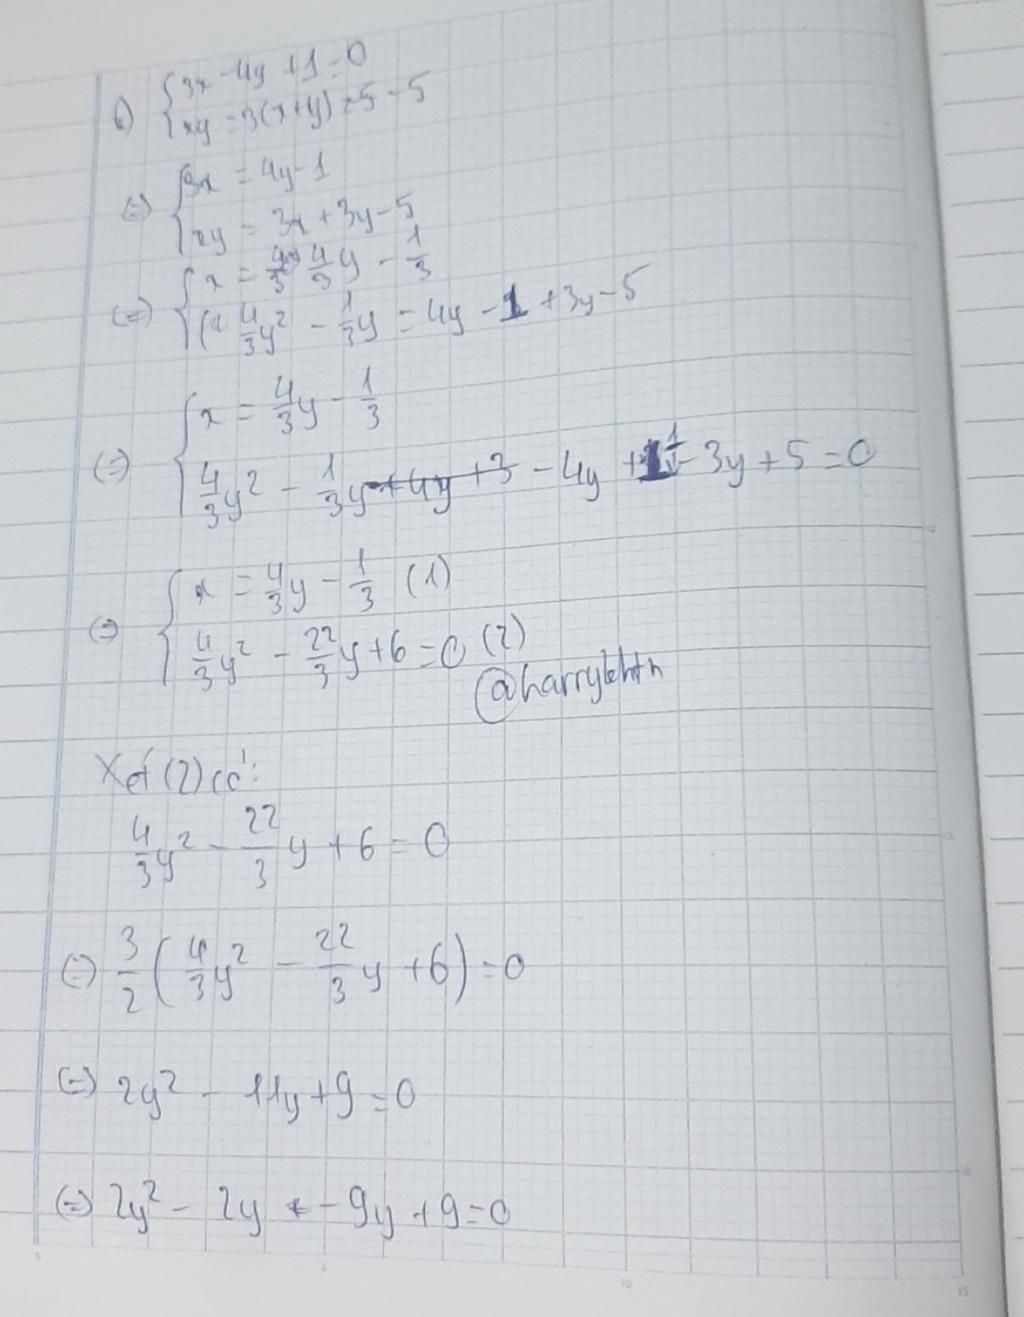 b) { 3x - 4y + 1 = 0
xy = 3(x+y) - 5
(=) { 3x = 4y - 1
xy = 3x + 3y - 5
(=) { x = 4/3 y - 1/3
4/3 y² - 1/3 y = 4y - 1 + 3y - 5
(=) { x = 4/3 y - 1/3
4/3 y² - 1/3 y - 4y + 1 - 3y + 5 = 0
(=) { x = 4/3 y - 1/3 (1)
4/3 y² - 22/3 y + 6 = 0 (2)
Xét (2) có:
4/3 y² - 22/3 y + 6 = 0
(=) 3/2 ( 4/3 y² - 22/3 y + 6 ) = 0
(=) 2y² - 11y + 9 = 0
(=) 2y² - 2y - 9y + 9 = 0
0 5 10 15